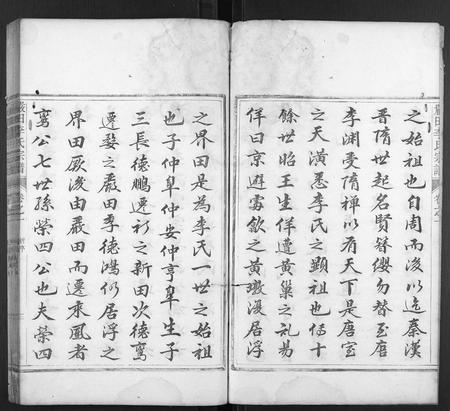 之始祖也自周而後以迄秦漢
晉隋世起名賢簪纓勿替至唐
李渊受隋禅以有天下是唐室
之天潢悉李氏之顯祖也傳十
餘世昭王生伴遺黄巢之乱易
伴曰京避雾歙之黄墩漫居浮
之界田是為李氏一世之始祖
也子仲皐仲安仲亨皐生子
三長德鵬遷祁之新田次德鸞
遷婺之嚴田季德鴻仍居浮之
界田厥後由嚴田而遷來鳳者
鸾公七世孫榮四公也夫榮四
嚴田李氏宗譜
卷之一